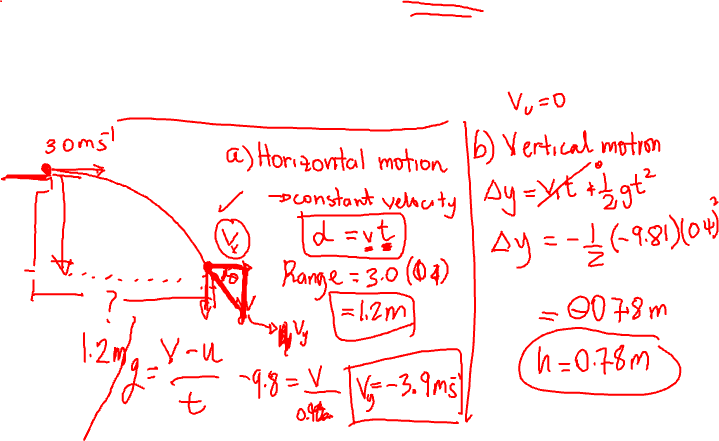 3.0ms⁻¹
a) Horizontal motion
→ constant velocity
d = vt
Range = 3.0 (0.4)
= 1.2m
Vₓ
θ
V
Vy
?
1.2m
g = V-u / t
-9.8 = V /
Vy = -3.9ms⁻¹
Vᵤ = 0
b) Vertical motion
Δy = V₁t + ½gt²
Δy = -½(-9.81)(0.4)²
= 0.78m
h = 0.78m